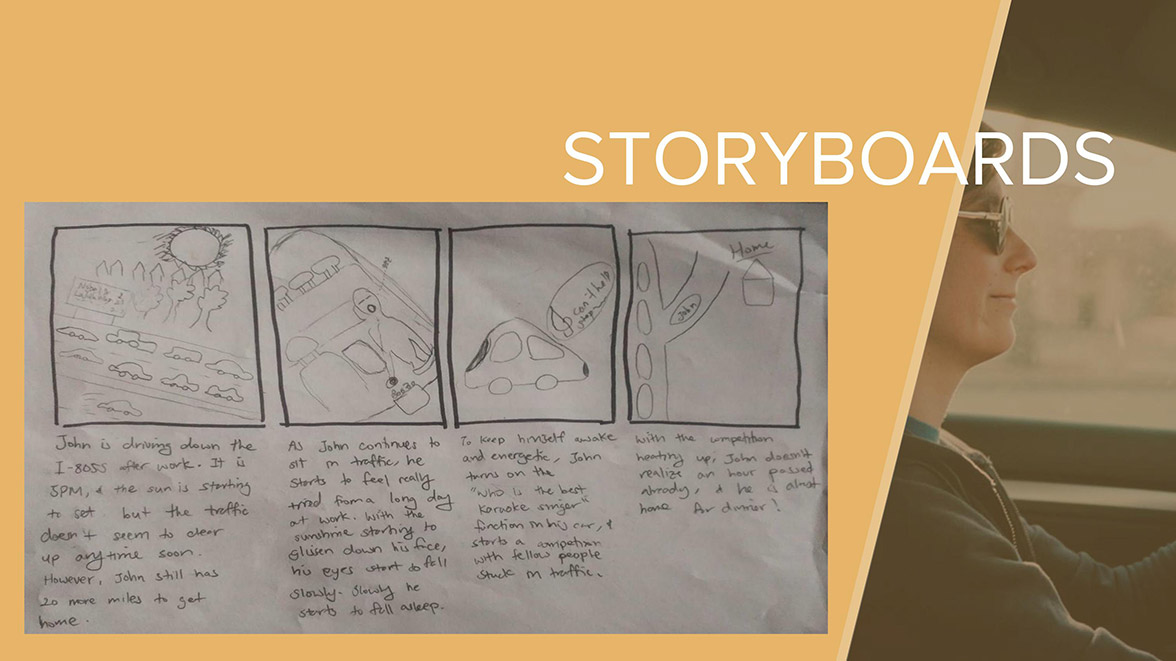 STORYBOARDS
Home
John
John is driving down the
I-805S after work. It is
5PM, & the sun is starting
to set. but the traffic
doesn't seem to clear
up anytime soon.
However, John still has
20 more miles to get
home.
As John continues to
sit in traffic, he
starts to feel really
tried from a long day
at work. With the
sunshine starting to
glisen down his face,
his eyes start do fall
slowly. Slowly he
starts to fall asleep.
To keep himself awake
and energetic, John
turns on the
"Who is the best
Karaoke singer"
function in his car, &
starts a competition
with fellow people
stuck in traffic.
With the competition
heating up, John doesn't
realize an hour passed
already, & he is almost
home for dinner!